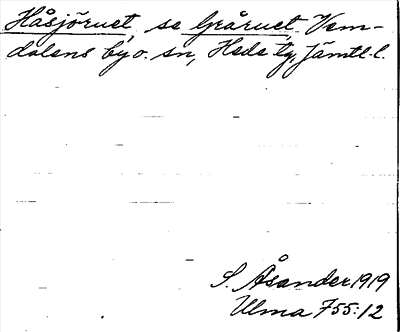 Håsjöruet, se Gråruet. Vem-
dalens by o. sn, Hede tg, Jämtl. l.
S. Åsander 1919
Ulma 755:12